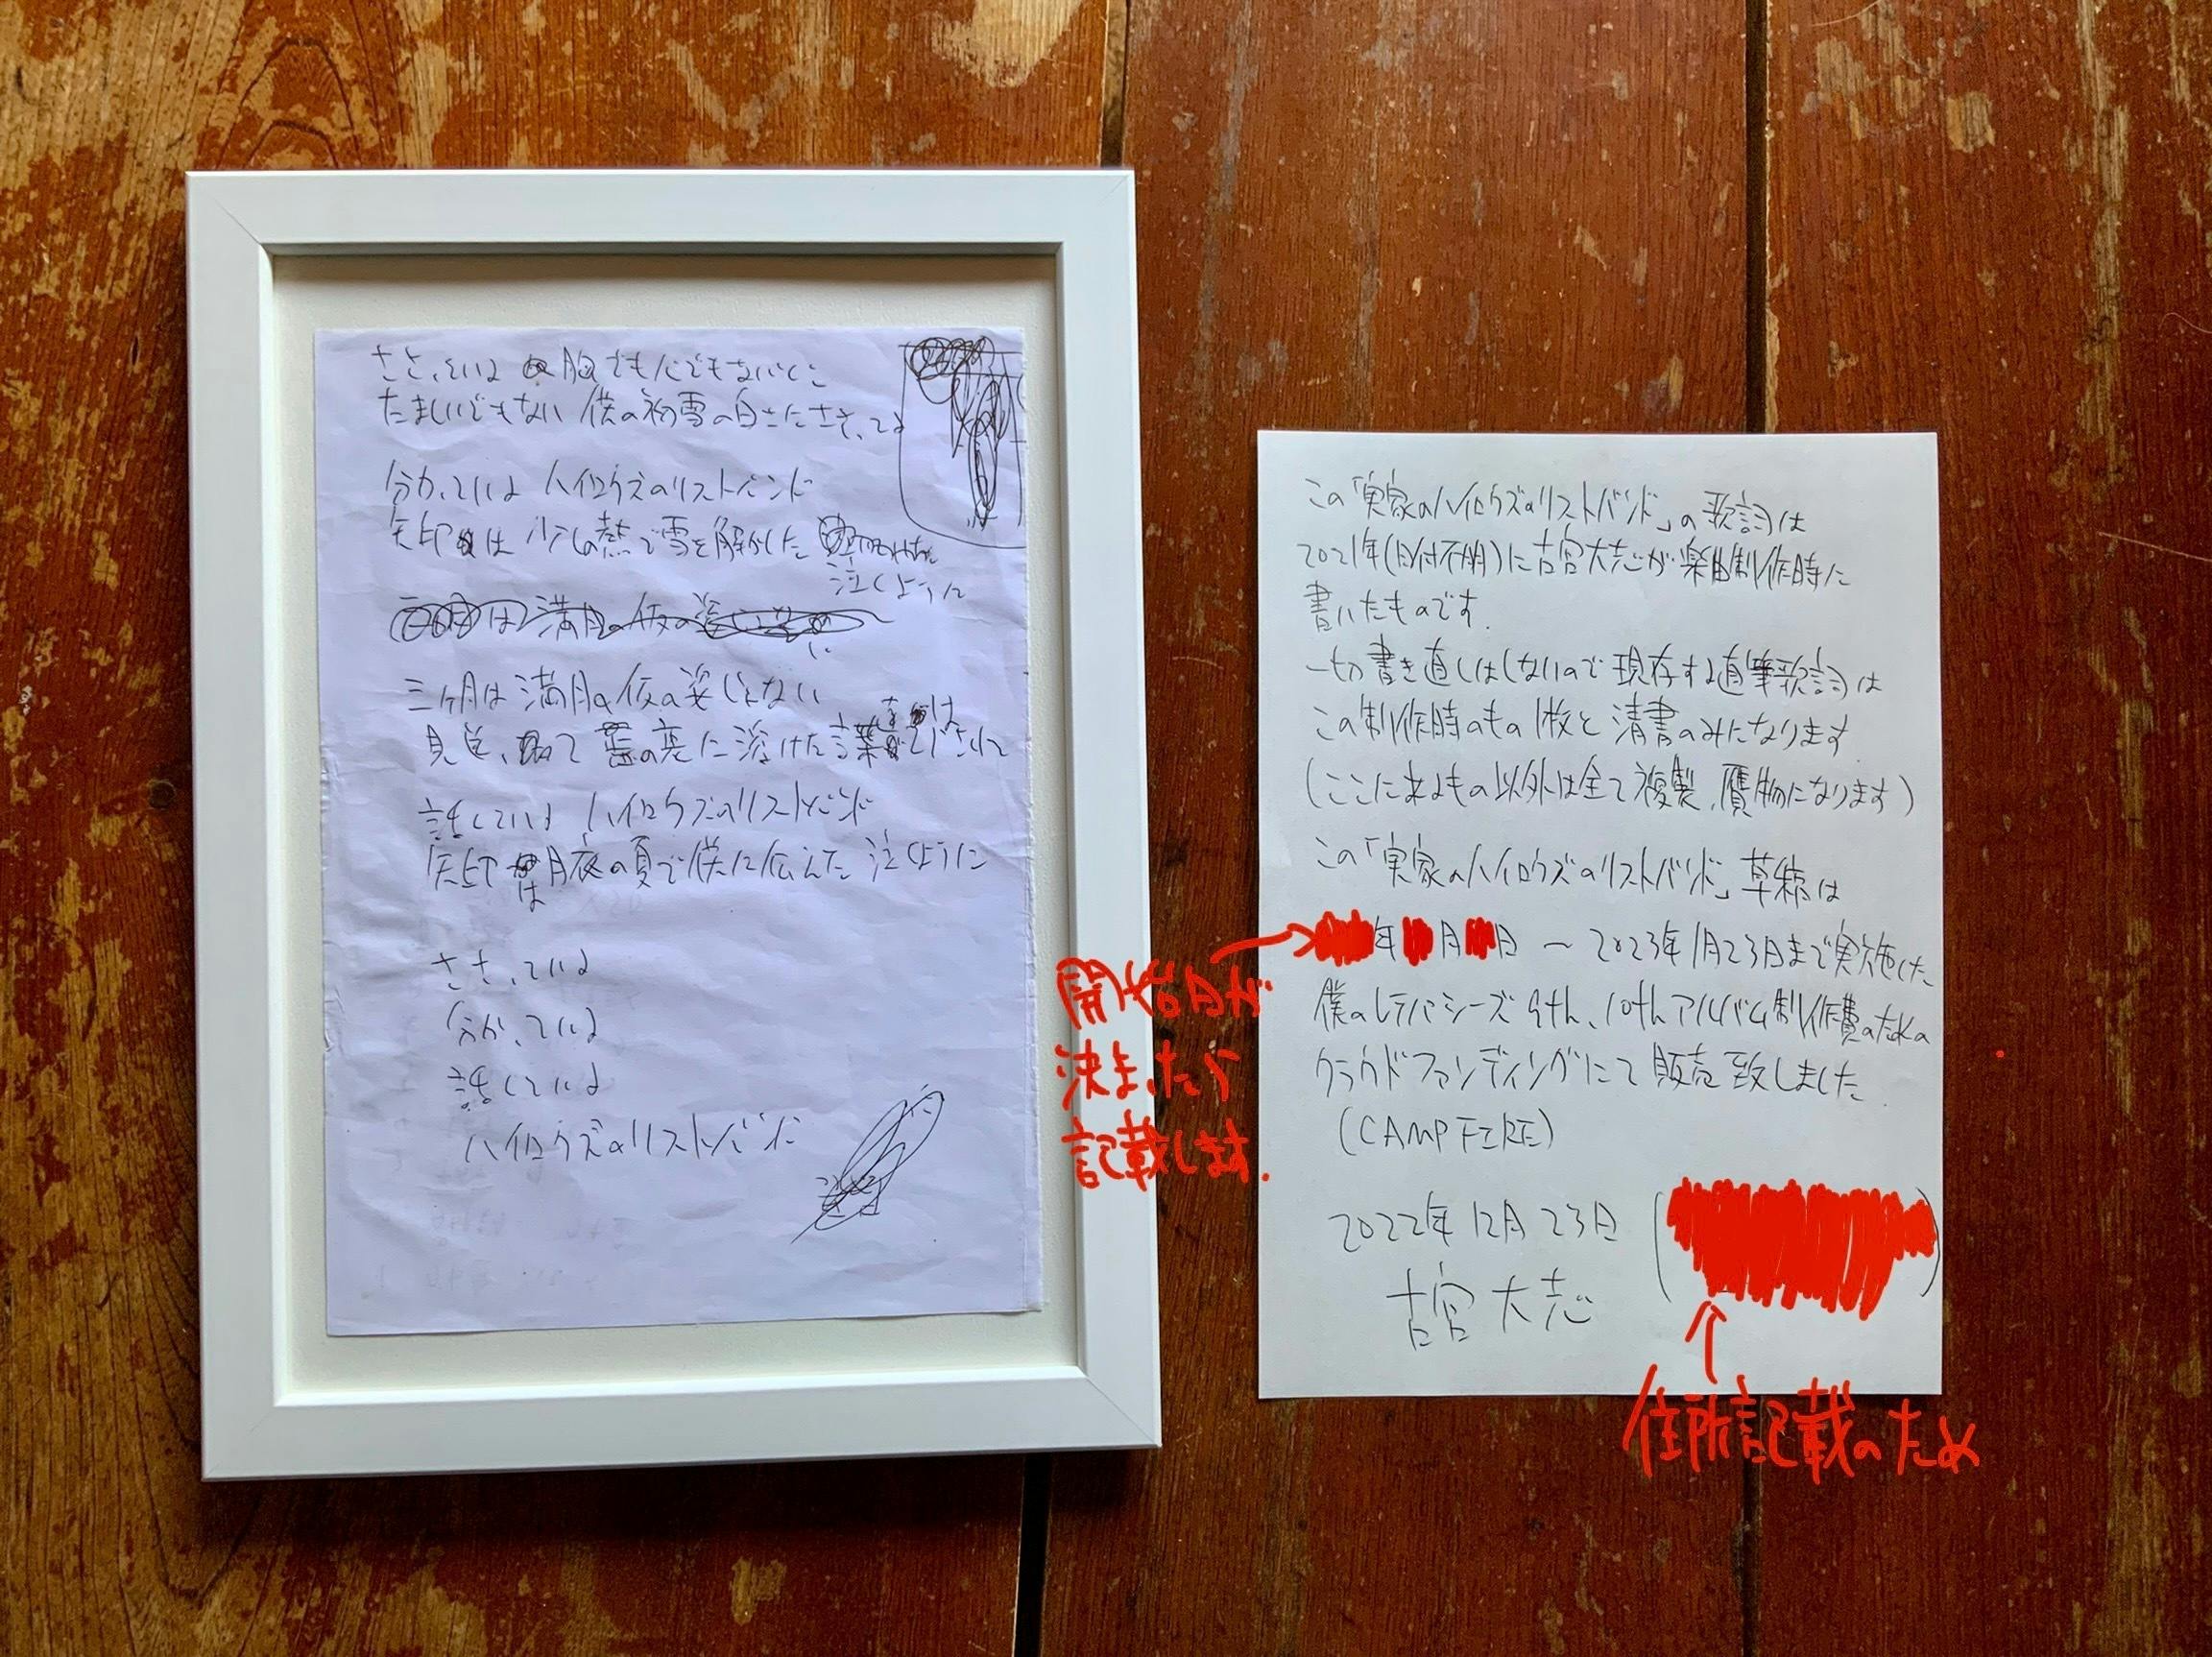 ささっている 胸でも心でもないとこ
たましいでもない 僕の初雪の白さにささってる
分かっている ハイロウズのリストバンド
矢印は 少しの熱で雪を解かした
泣くように
は満月の仮の姿
三ヶ月は満月の仮の姿じゃない
見送って 裏に溶けた言葉
話している ハイロウズのリストバンド
矢印 月夜の夏で僕に伝えた 泣くように
は
ささっている
分かっている
話している
ハイロウズのリストバンド
この「実家のハイロウズのリストバンド」の歌詞は
2021年(日付不明)に古宮大志が楽曲制作時に
書いたものです.
一切書き直しはしないので現存する直筆歌詞は
この制作時のもの1枚と清書のみになります
(ここに来るもの以外は全て複製、贋物になります)
この「実家のハイロウズのリストバンド」草稿は
年 月 日 〜 2023年1月23日まで実施した
僕のレテパシーズ 9th、10thアルバム制作費のための
クラウドファンディングにて販売致しました.
(CAMPFIRE)
2022年12月23日 ( )
古宮大志
開始日が
決まったら
記載します.
住所記載のため